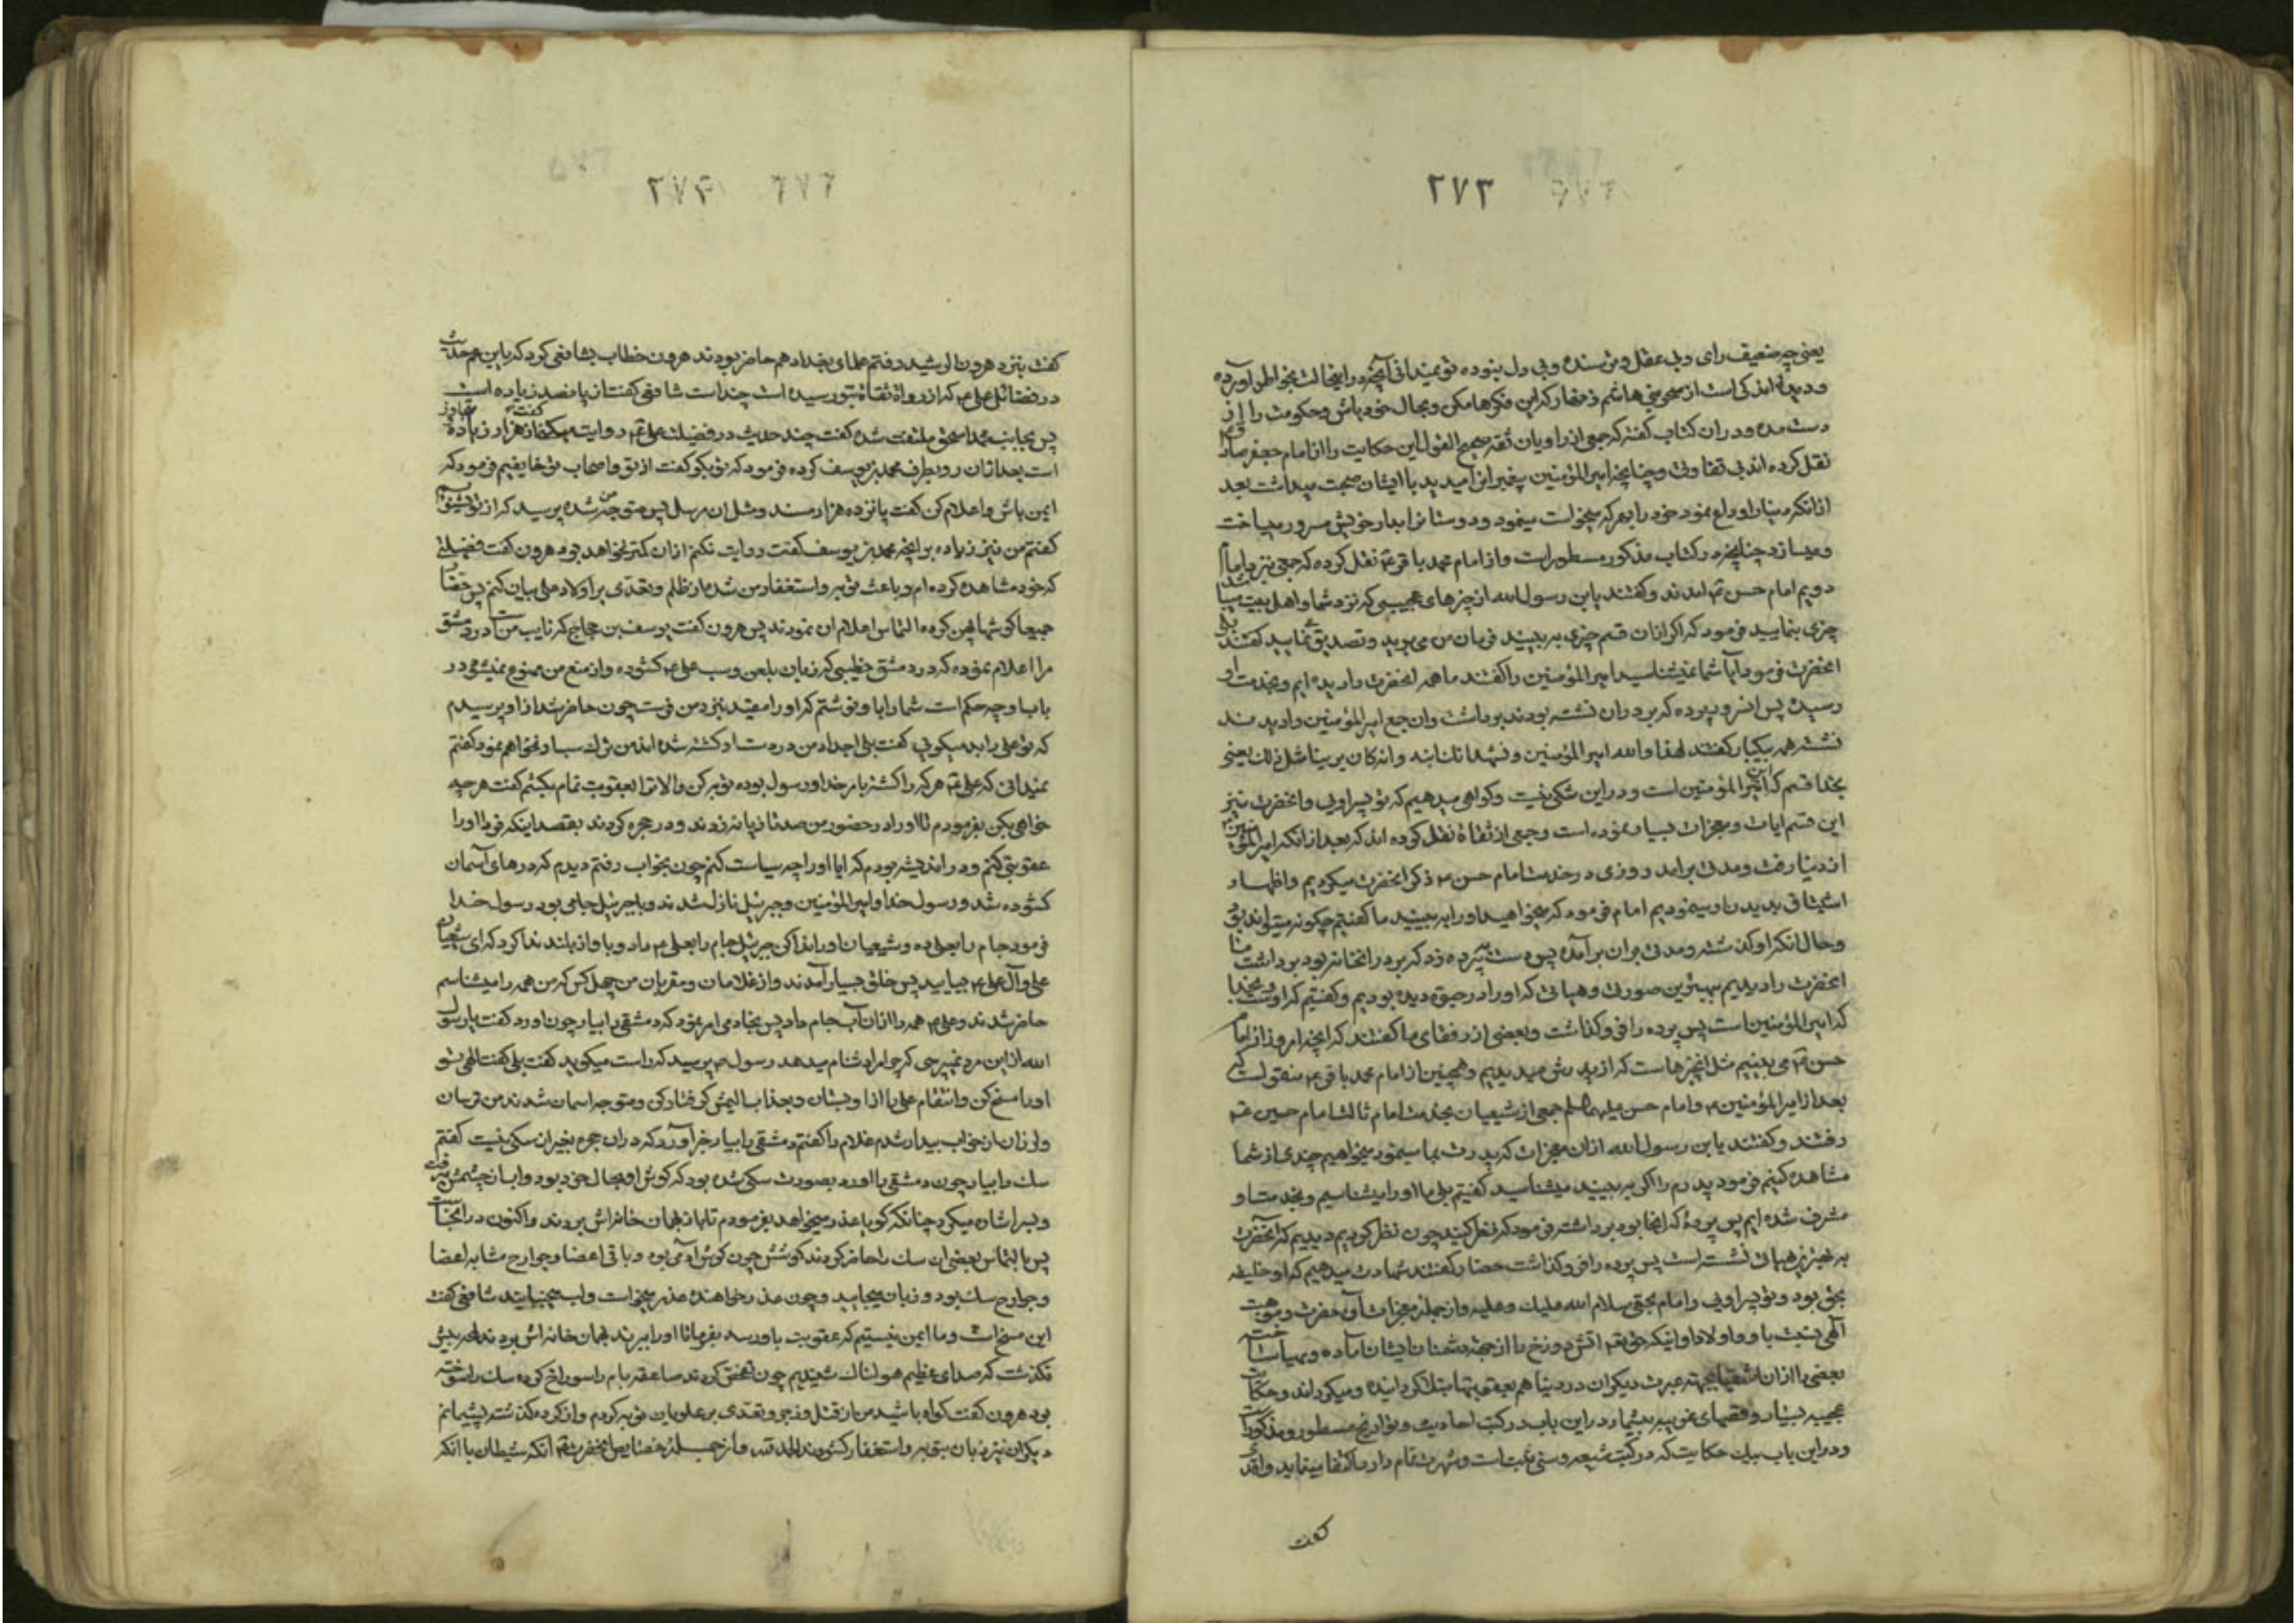 ۲۷۳
یعنی چه ضعیف رای و بی عقل و ترسنده و بی دل بوده تو نمیدانی آنچه در اینحالت بخاطر آورده
و دیدۀ اندکی است از سحر بنی هاشم زنهار که این فکرها مکن و بحال خود باش و حکومت را از
دست مده و در ان کتاب گفته که جمعی از راویان ثقه صحیح القول این حکایت را از امام جعفر صادق
نقل کرده اند بی تفاوتی و چنانچه امیرالمؤمنین پیغمبر انرا میدید با ایشان صحبت میداشت بعد
از انکه دنیا را وداع نمود خود را بهر که میخواست مینمود و دوستانرا بدیدار خویش مسرور میساخت
و میسازد چنانچه در کتاب مذکور مسطور است و از امام محمد باقر ع نقل کرده که جمعی نزد امام
دویم امام حسن ع آمدند و گفتند یابن رسول الله از چیزهای عجیبی که نزد شما و اهل بیت میباشد
چیزی بنمایید فرمود که اگر از ان قسم چیزی به بینید فرمان من می برید و تصدیق مینمایید گفتند بلی
انحضرت فرمود آیا شما نمیشناسید امیرالمؤمنین را گفتند ما همه انحضرت را دیده ایم و بخدمت او
رسیده پس انسرور پرده که بر در ان نشسته بودند برداشت و ان جمع امیرالمؤمنین را دیدند
نشسته همه بیکبار گفتند هذا والله امیرالمؤمنین و نشهد انك ابنه و انه کان یرینا مثل ذلك یعنی
بخدا قسم که این امیرالمؤمنین است و در این شکی نیست و گواهی میدهیم که تو پسر اویی و انحضرت نیز
این قسم ایات و معجزات بسیار نموده است و جمعی از ثقاة نقل کرده اند که بعد از انکه امیرالمؤمنین
از دنیا رفت و مدتی برامد روزی در خدمت امام حسن ع ذکر انحضرت میکردیم و اظهار
اشتیاق بدیدن او مینمودیم امام فرمود که میخواهید او را به بینید ما گفتیم چگونه میتواند بود
و حال انکه او گذشته و مدتی بران برآمده پس دست به پرده زد که بر در انخانه بود برداشت ما
انحضرت را دیدیم ببهترین صورتی و هیأتی که او را در حیوة دیده بودیم و گفتیم که اوست بخدا
که امیرالمؤمنین است پس پرده را فروگذاشت و بعضی از رفقای ما گفتند که انچه امروز از امام
حسن ع می بینیم مثل انچیزهاست که از پدرش میدیدیم و همچنین از امام محمد باقر ع منقولست که
بعد از امیرالمؤمنین ع و امام حسن علیهما السلام جمعی از شیعیان بخدمت امام ثالث امام حسین ع
رفتند و گفتند یابن رسول الله از ان معجزات که پدرت بما مینمود میخواهیم چندی از شما
مشاهده کنیم فرمود پدرم را اگر به بینید میشناسید گفتیم بلی ما او را میشناسیم و بخدمت او
مشرف شده ایم پس پردۀ که انجا بود برداشته فرمود که نظر کنید چون نظر کردیم دیدیم که انحضرت
به عزیزترین هیأتی نشسته است پس پرده را فروگذاشت حضار گفتند شهادت میدهیم که او خلیفه
بحق بود و تو پسر اویی و امام بحقی سلام الله علیك و علیه و از جمله معجزات انحضرت و موهبت
الهی نسبت باو و اولاد او اینکه حق تعالی اتش دوزخ را از جهة دشمنان ایشان آماده و مهیا ساخته
بعضی را از ان اشقیا بجهة عبرت دیگران در دنیا هم بعقوبتها مبتلا گردانیده و میگرداند و حکایات
عجیبه بسیار و قصهای غریبه بیشمار در این باب در کتب احادیث و تواریخ مسطور و مذکور است
و در این باب بیك حکایت که در کتب شیعه و سنی ثبت است و شهرت تمام دارد اکتفا مینماید واقدی
گفت
۲۷۴
گفت بنزد هرون الرشید رفتم علمای بغداد هم حاضر بودند هرون خطاب بشافعی کرد که یابن عم حدیث
در فضائل علی ع که از رواة ثقاة بتو رسیده است چند است شافعی گفت از پانصد زیاده است
پس بجانب محمد اسحق ملتفت شده گفت چند حدیث در فضیلت علی ع روایت میکنی گفت از هزار زیاده
است بعد ازان رو بطرف محمد بن یوسف کرده فرمود که تو بگو گفت از تو و اصحاب تو خایفیم فرمود که
ایمن باش و اعلام کن گفت پانزده هزار مسند و مثل ان مرسل پس متوجه من شده پرسید که از تو بشنویم
گفتم من نیز زیاده بر انچه محمد بن یوسف گفت روایت نکنم ازان کمتر نخواهد بود هرون گفت فضیلتی
که خود مشاهده کرده ام و باعث توبه و استغفار من شده از ظلم و تعدی بر اولاد علی بیان کنم پس حضار
جمیعا گوش پهن کرده التماس اعلام ان نمودند پس هرون گفت یوسف بن حجاج که نایب من است در دمشق
مرا اعلام نموده که در دمشق خطیبی که زبان بلعن و سب علی ع گشوده و از منع من ممنوع نمیشود در
باب او چه حکم است شما را با او نوشتم که او را مقید بنزد من فرست چون حاضر شد از او پرسیدم
که تو علی را بد میگویی گفت بلی اجداد من در دست او کشته شده اند من ترك سب او نخواهم نمود گفتم
نمیدانی که علی ع هر که را کشته بامر خدا و رسول بوده توبه کن والا ترا بعقوبت تمام بکشم گفت هر چه
خواهی بکن بفرمودم تا او را در حضور من صد تازیانه زدند و در حجره کردند بقصد اینکه فردا او را
عقوبتی کنم و در اندیشه بودم که ایا او را چه سیاست کنم چون بخواب رفتم دیدم که درهای آسمان
گشوده شد و رسول خدا و امیرالمؤمنین و جبرئیل نازل شدند و با جبرئیل جامی بود رسول خدا
فرمود جام را بعلی ده و شیعیان او را ندا کن جبرئیل جام را بعلی ع داد و باواز بلند ندا کرد که ای شیعیان
علی و آل علی ع بیایید پس خلق بسیار آمدند و از غلامان و مقربان من چهل کس که من همه را میشناسم
حاضر شدند و علی ع همه را از ان آب جام داد پس بخادمی امر نمود که دمشقی را بیار چون اورد گفت یا رسول
الله از این مرد نمیپرسی که چرا مرا دشنام میدهد رسول ص پرسید که راست میگوید گفت بلی گفت الهی تو
او را مسخ کن و انتقام علی را از او بستان و بعذاب الیمش گرفتار کن و متوجه اسمان شدند من ترسان
و لرزان از خواب بیدار شدم غلام را گفتم دمشقی را بیار خبر آورد که در ان حجره بغیر از سگی نیست گفتم
سك را بیار چون دمشقی را اورد بصورت سگی شده بود که گوش او بحال خود بود و اب از چشمش میرفت
و بسر اشاره میکرد چنانکه گویا عذر میخواهد بفرمودم تا باز بهمان خانه اش بردند و اکنون در انجاست
پس بالتماس بعضی ان سك را حاضر کردند گوشش چون گوش آدمی بود و باقی اعضا و جوارح مشابه اعضا
و جوارح سك بود و زبان میجایید و چون عذر خواهنده عذر میخواست و لب میجنبانید شافعی گفت
این مسخ است و ما ایمن نیستیم که عقوبت باو رسد بفرما تا او را ببرند بهمان خانه اش بردند لمحه بیش
نگذشت که صدای عظیم هولناك شنیدیم چون تحقیق کردند صاعقه بام را سوراخ کرده سك را سوخته
بود هرون گفت گواه باشید من از قتل و زجر و تعدی بر علویان توبه کردم و از کرده گذشته پشیمانم
دیگران نیز زبان بتوبه و استغفار گشودند و از جمله خصایص انحضرت ع انکه شیطان با انکه